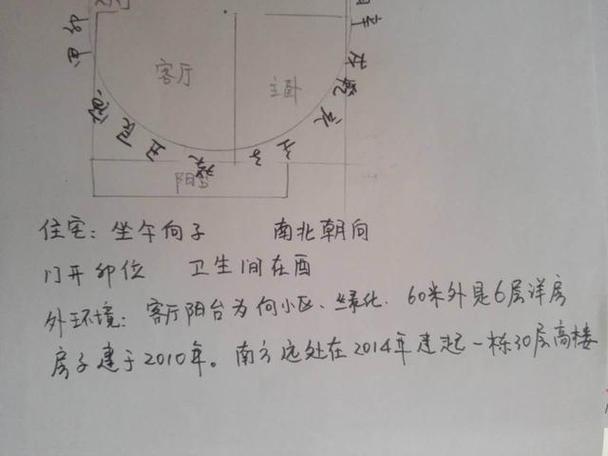 辛
乙
卯
戌
客厅
主卧
乾
亥
辰
丑
癸
子
壬
阳台
住宅: 坐午向子 南北朝向
门开卯位 卫生间在酉
外环境: 客厅阳台为向小区、绿化. 60米外是6层洋房
房子建于2010年。南方远处在2014年建起一栋30层高楼